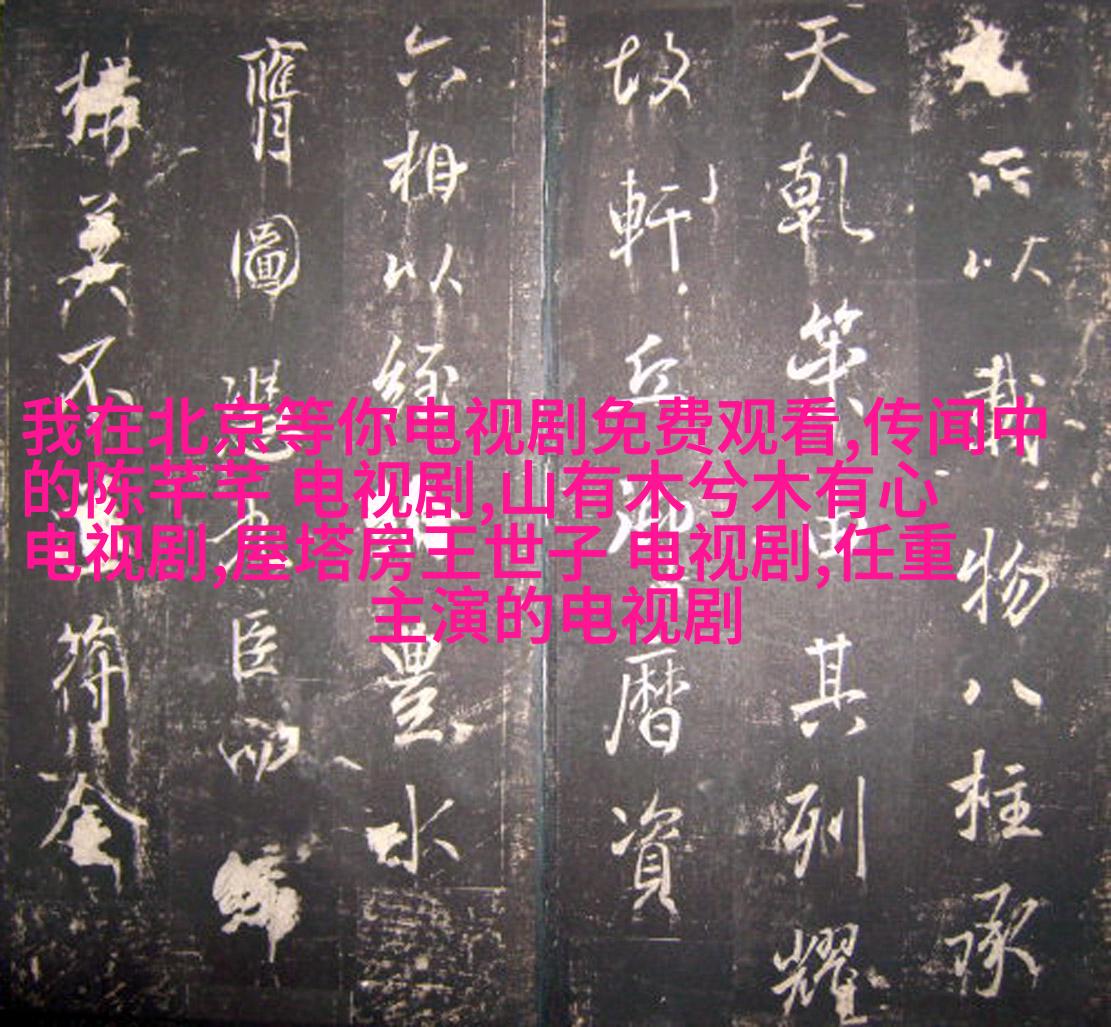 所以 物八柱承
天乾策由其列耀
故軒丘御曆資
六相以經邦豐水
膺圖 臣
構莫不 符
我在北京等你电视剧免费观看,传闻中
的陈芊芊 电视剧,山有木兮木有心
电视剧,屋塔房王世子 电视剧,任重
主演的电视剧